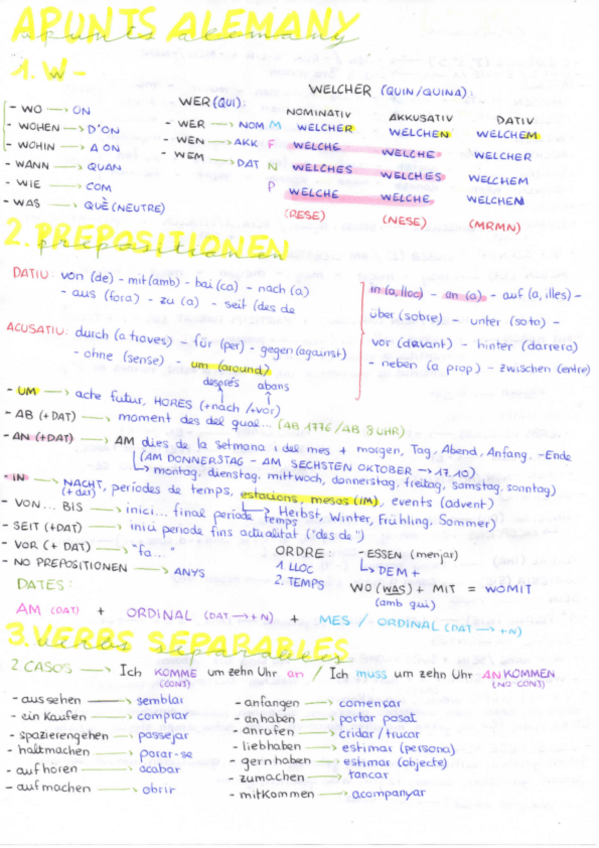 APUNTS ALEMANY
apunts alemany
1. W-
WELCHER (QUIN/QUINA):
WER (QUI):
NOMINATIV AKKUSATIV DATIV
- WO → ON
- WOHEN → D'ON
- WOHIN → A ON
- WANN → QUAN
- WIE → COM
- WAS → QUÈ (NEUTRE)
- WER → NOM
- WEN → AKK
- WEM → DAT
M WELCHER WELCHEN WELCHEM
F WELCHE WELCHE WELCHER
N WELCHES WELCHES WELCHEM
P WELCHE WELCHE WELCHEN
(RESE) (NESE) (MRMN)
2. PREPOSITIONEN
prepositionen
DATIU: von (de) - mit (amb) - bai (ca) - nach (a)
- aus (fora) - zu (a) - seit (des de
ACUSATIU: durch (a traves) - für (per) - gegen (against)
- ohne (sense) - um (around)
in (a, lloc) - an (a) - auf (a, illes) -
über (sobre) - unter (soto) -
vor (davant) - hinter (darrera)
- neben (a prop) - zwischen (entre)
després abans
- UM → ache futur, HORES (+nach /+vor)
- AB (+DAT) → moment des del qual... (AB 1776 / AB 8 UHR)
- AN (+DAT) → AM dies de la setmana i del mes + morgen, Tag, Abend, Anfang, -Ende
(AM DONNERSTAG - AM SECHSTEN OKTOBER → 17.10)
montag, dienstag, mittwoch, donnerstag, freitag, samstag, sonntag)
- IN (+dat) → NACHT, períodes de temps, estacions, mesos (IM), events (advent)
Herbst, Winter, Frühling, Sommer)
- VON... BIS → inici... final període temps
- SEIT (+DAT) → inici periode fins actualitat ("des de")
- VOR (+ DAT) → "fa..."
- NO PREPOSITIONEN → ANYS
ORDRE:
1. LLOC
2. TEMPS
- ESSEN (menjar)
DEM +
WO (WAS) + MIT = WOMIT
(amb qui)
DATES:
AM (DAT) + ORDINAL (DAT → +N) + MES / ORDINAL (DAT → +N)
3. VERBS SEPARABLES
verbs separables
2 CASOS → Ich KOMME um zehn Uhr an / Ich muss um zehn Uhr ANKOMMEN
(CONJ) (NO CONJ)
- aussehen → semblar
- einkaufen → comprar
- spazierengehen → passejar
- haltmachen → parar-se
- aufhören → acabar
- aufmachen → obrir
- anfangen → començar
- anhaben → portar posat
- anrufen → cridar / trucar
- liebhaben → estimar (persona)
- gernhaben → estimar (objecte)
- zumachen → tancar
- mitkommen → acompanyar